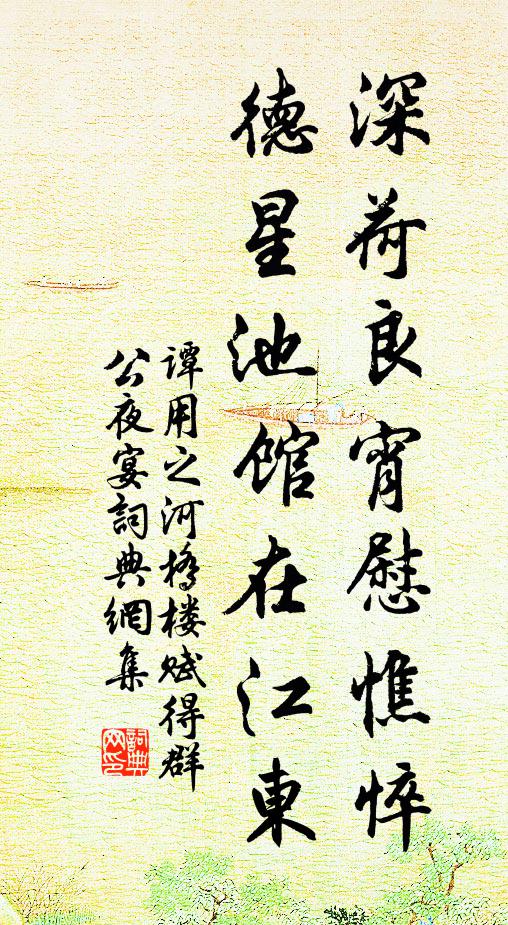 深荷良宵慰憔悴
德星池馆在江東
谭用之河橋楼赋得群
公夜宴詞典網集
詞典网印